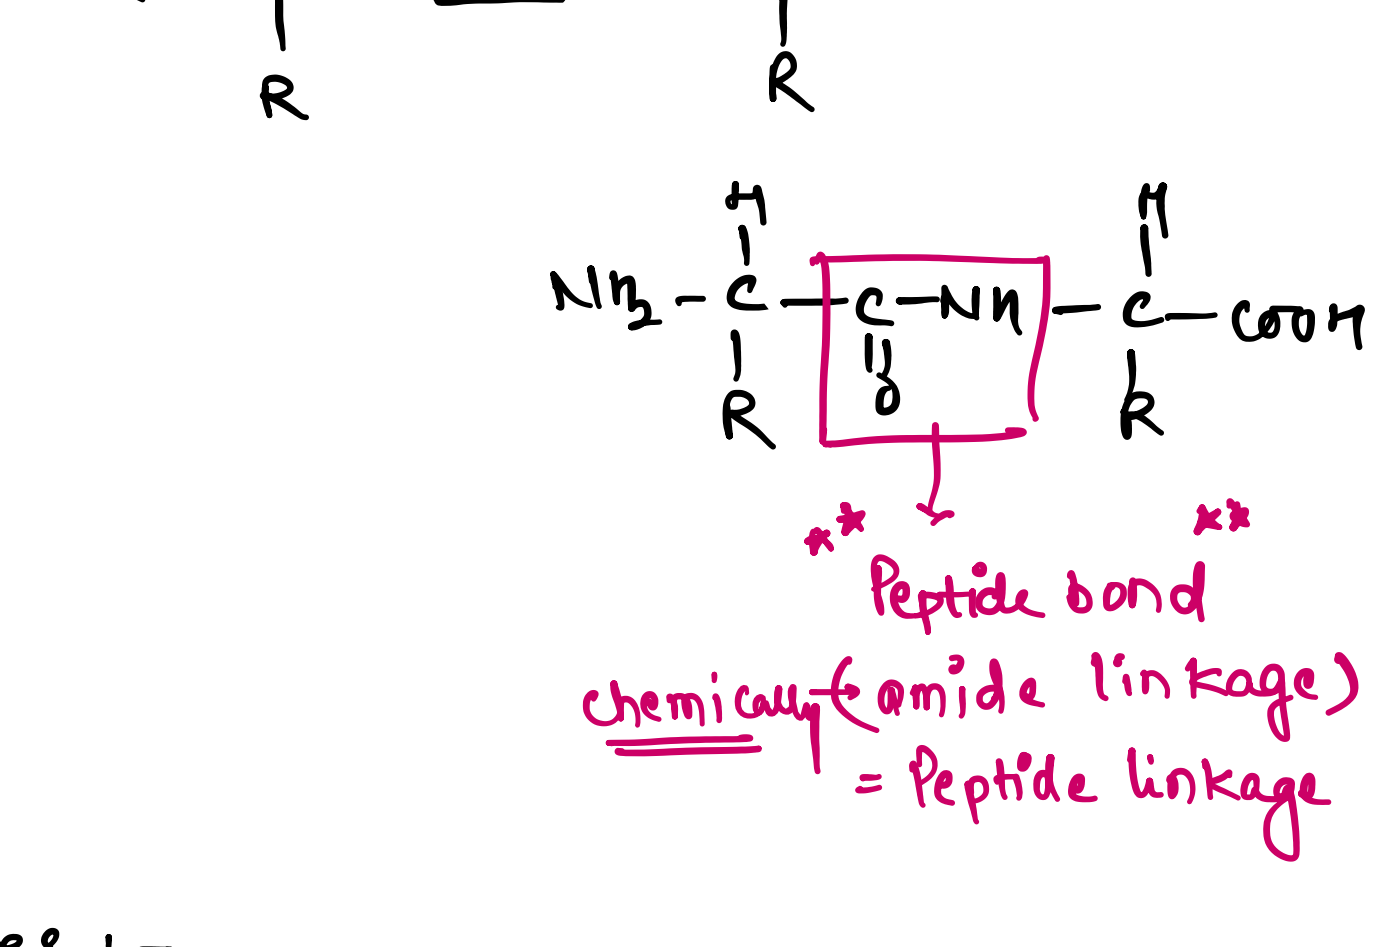 R R
H H
NH2 - C - C - NH - C - COOH
|| O
R R
** **
Peptide bond
chemically → (amide linkage)
= Peptide linkage